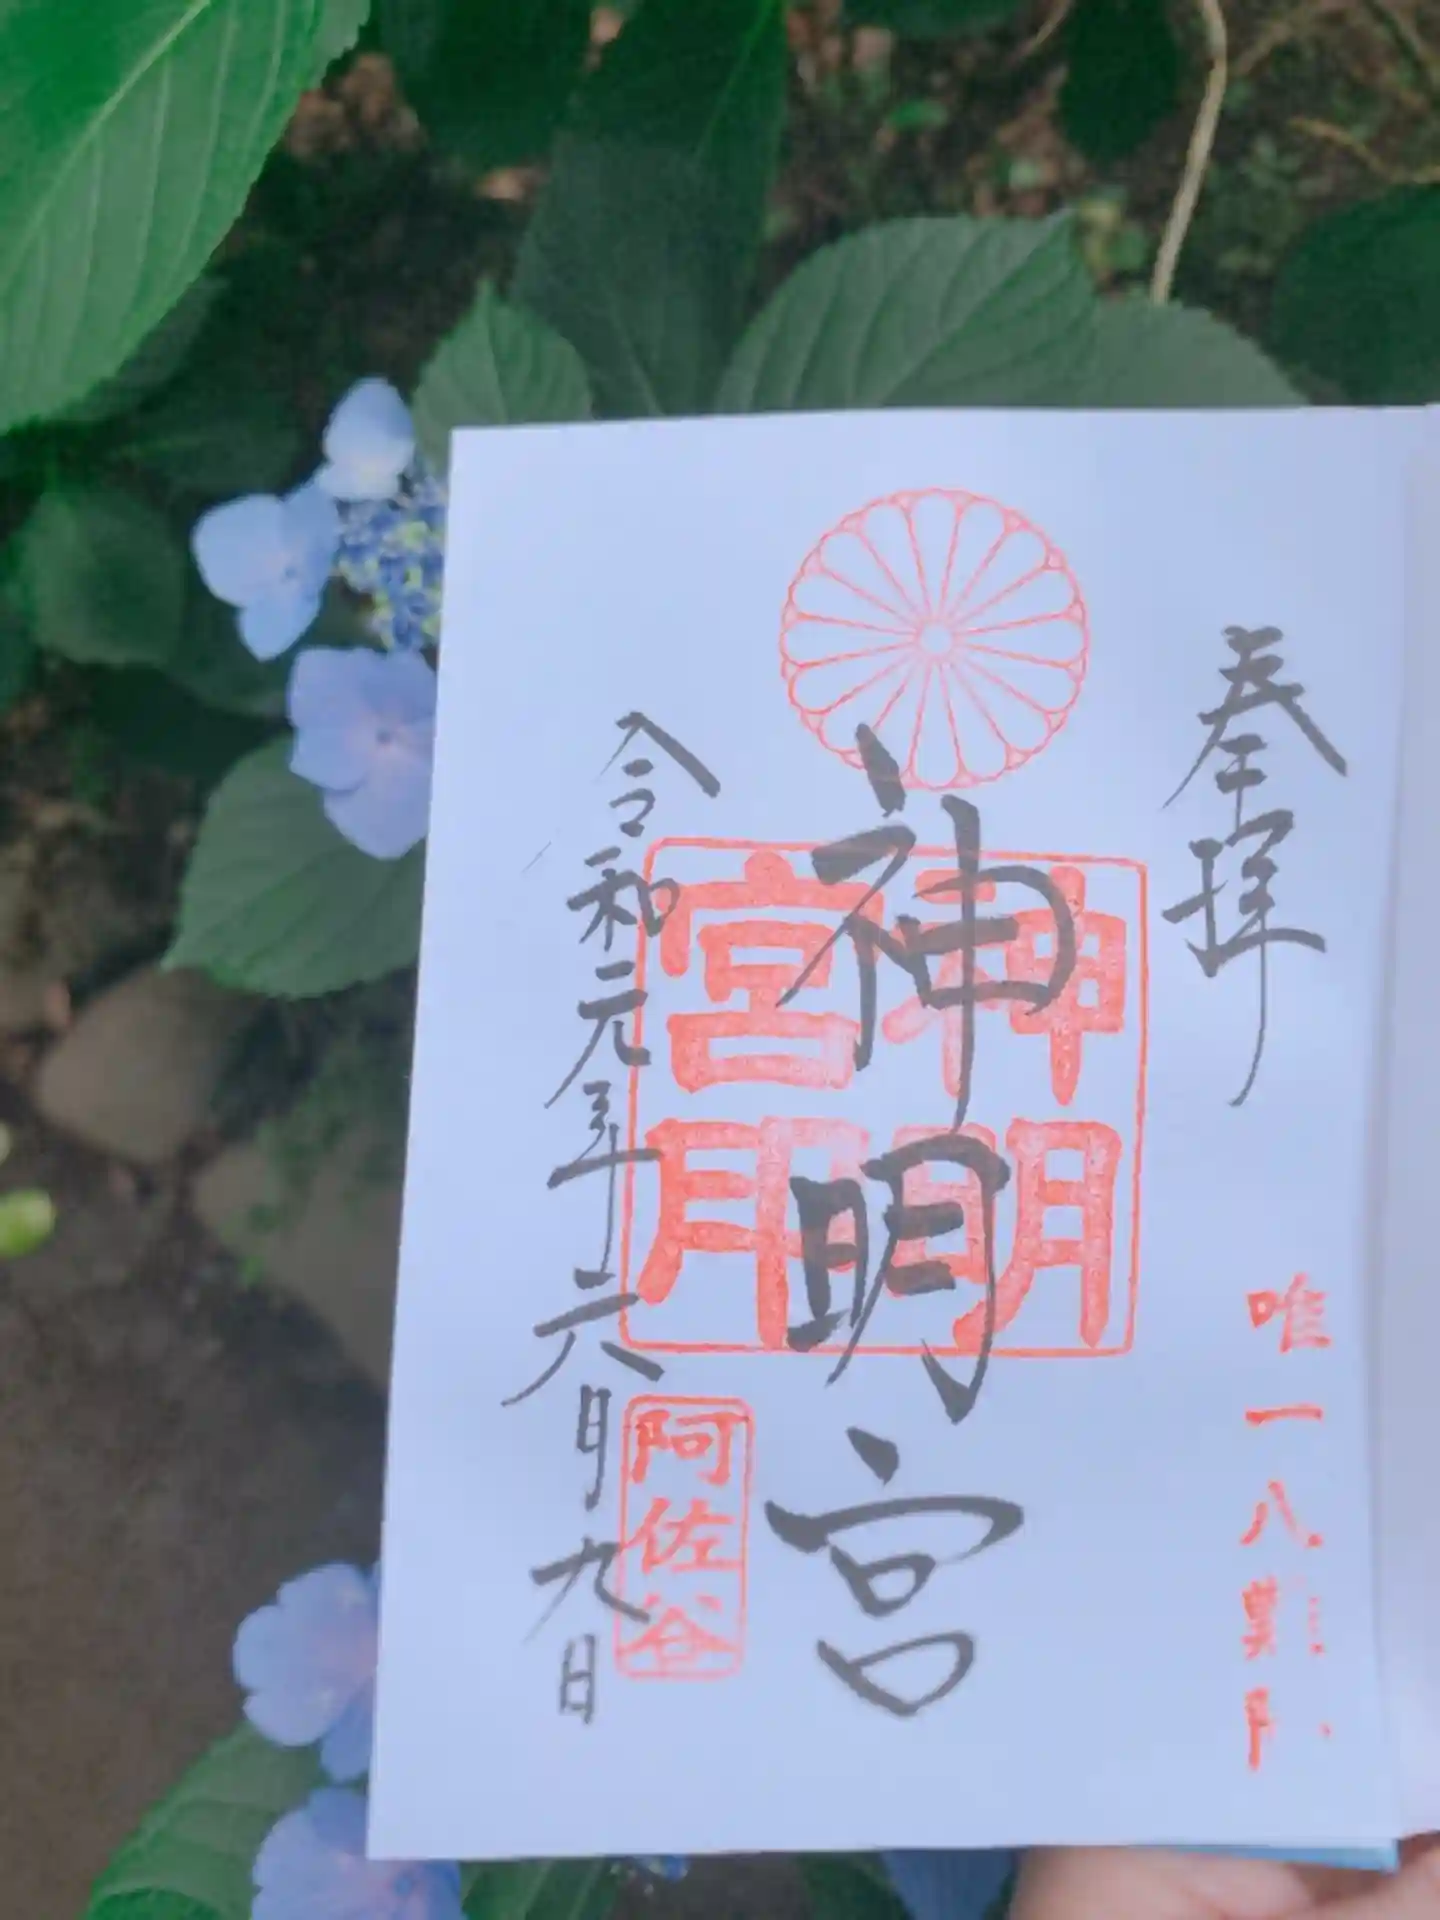 奉拝
唯一八難除
神明宮
神明宮
阿佐谷
令和元年六月九日